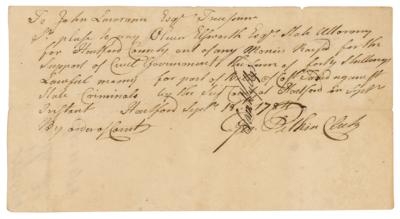 To John Lawrance Esqr. Treasurer
Sr. please to pay Oliver Ellsworth Esqr. State Attorney
for Hartford County out of any Monies Raised for the
Support of Civil Government the Sum of forty Shillings
Lawful money for part of of Cost against
State Criminals by the Supr. Court at Hartford in Septr.
Instant Hartford Septr. 1784
By order of Court Geo. Pitkin Clerk